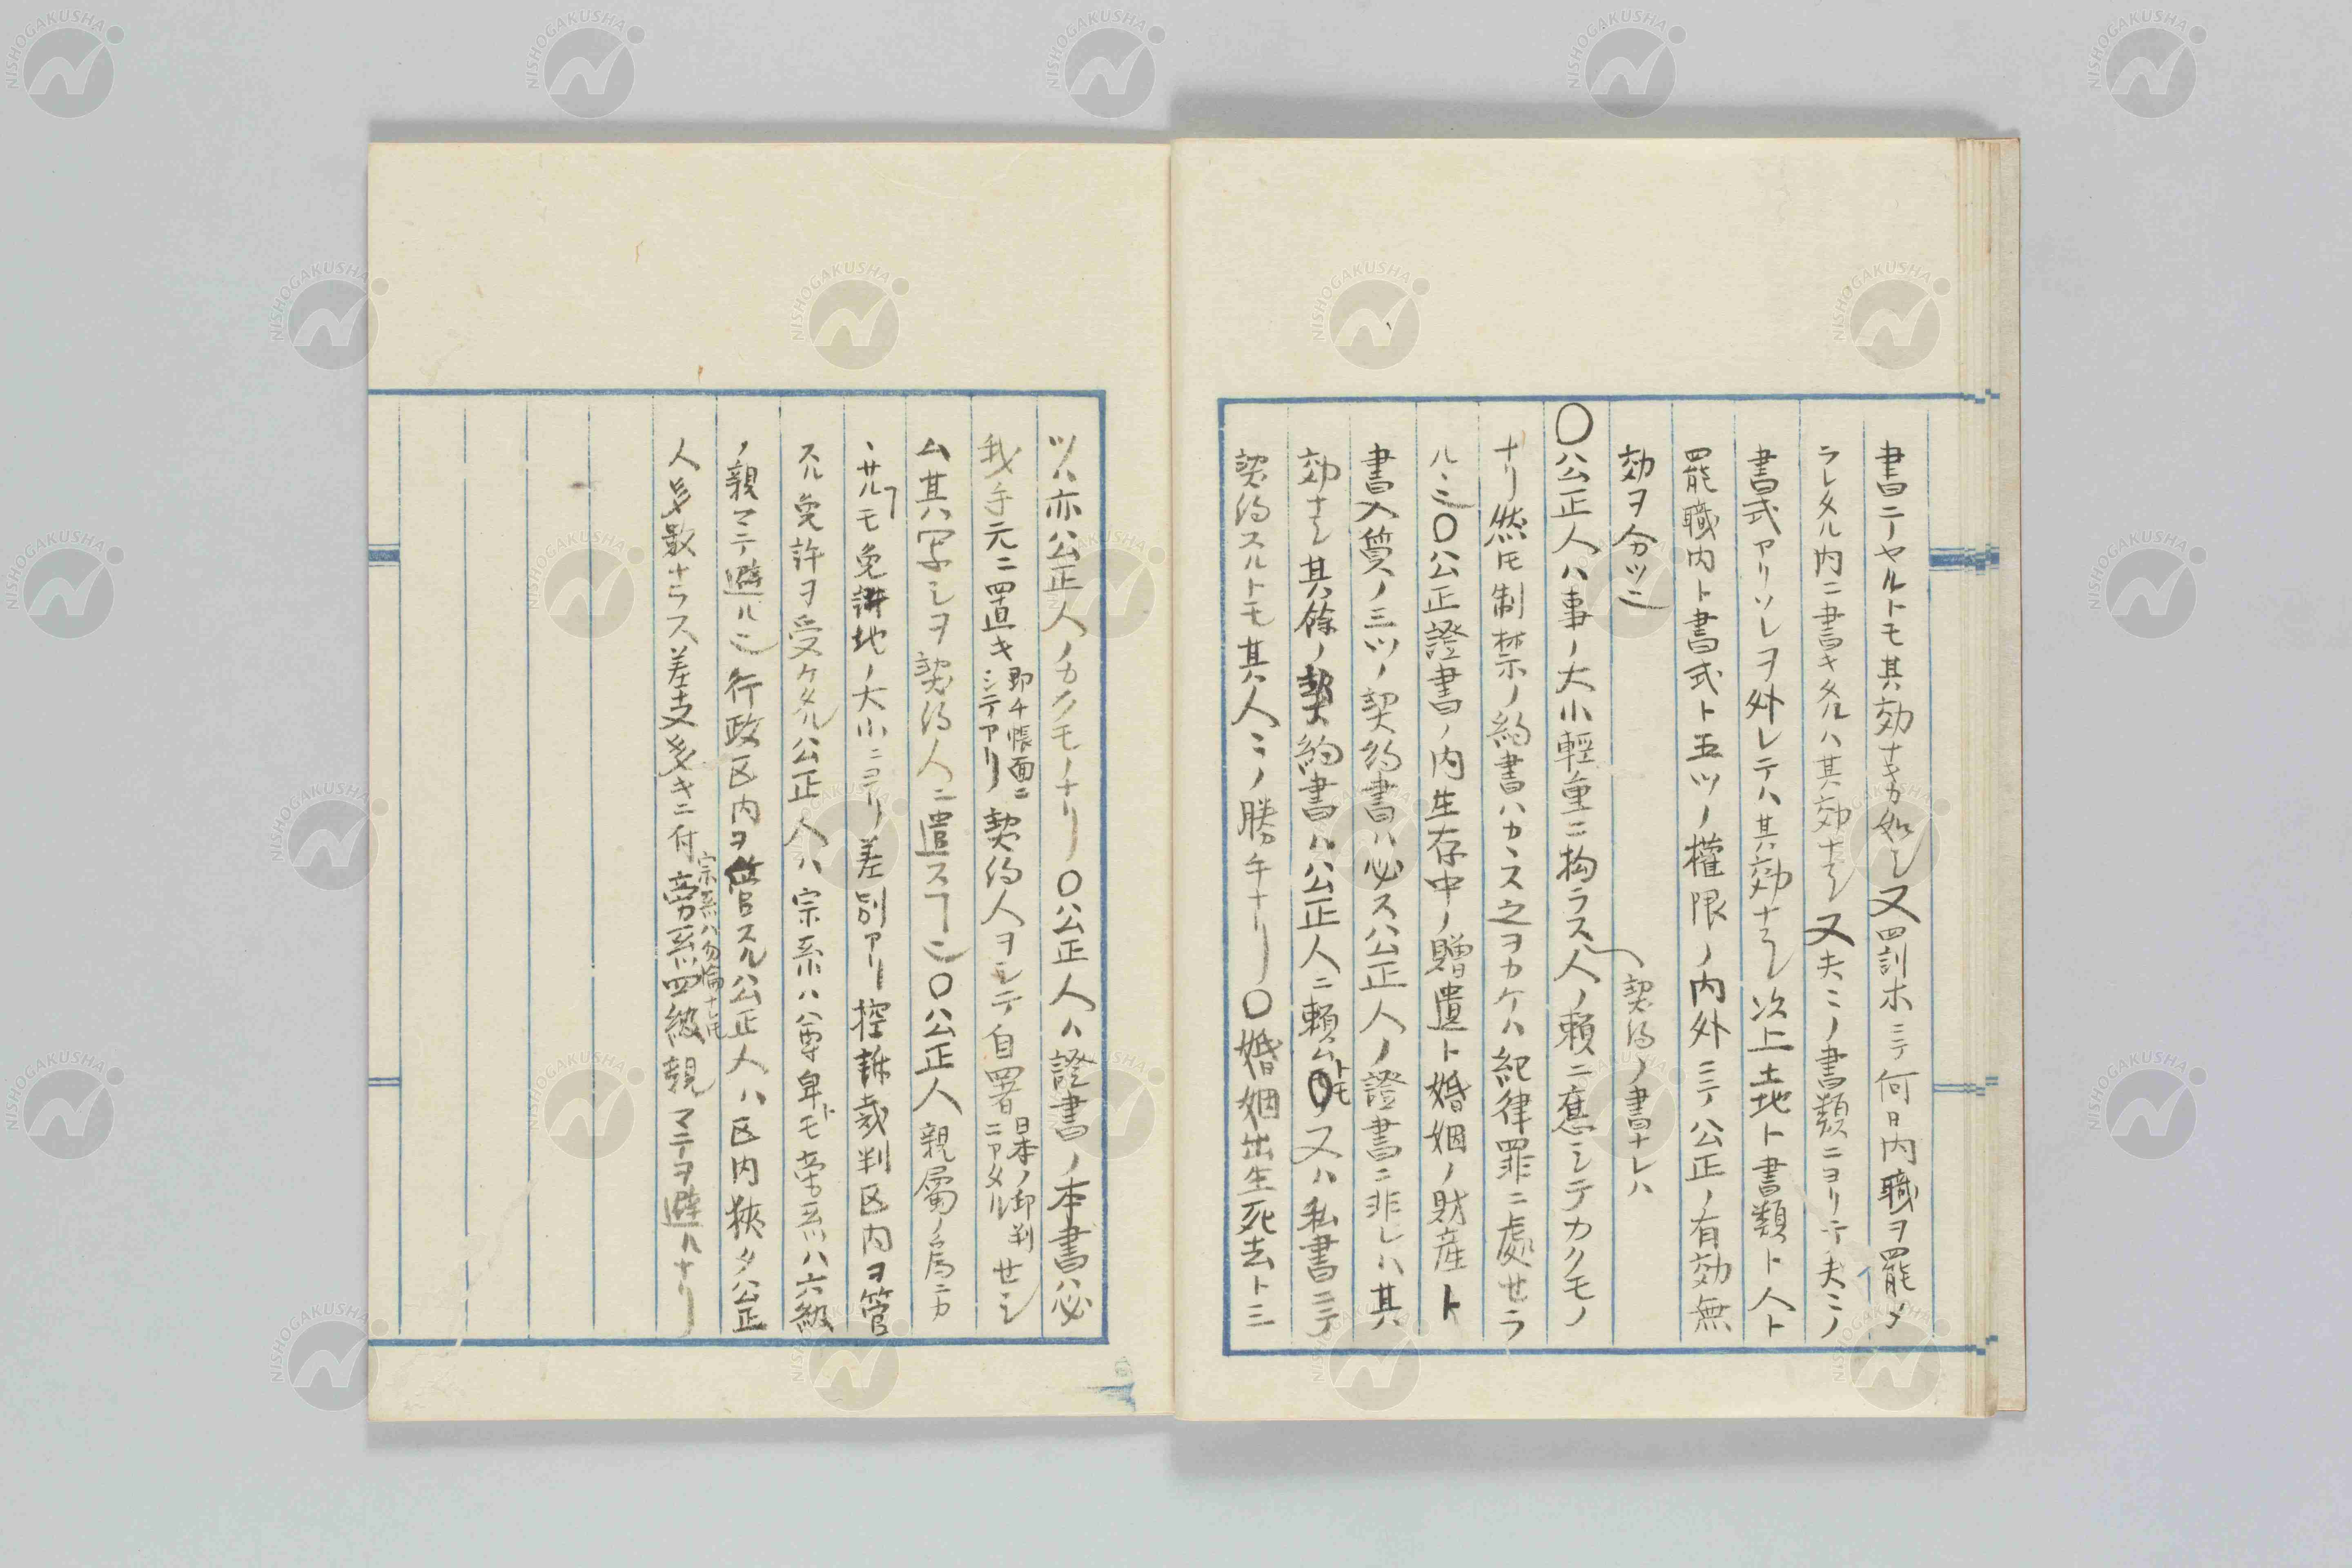 書ニヤルトモ其効ナキカ如シ又四割ホニテ何日内職ヲ罷メ
ラレタル内ニ書キタルハ其効ナシ又夫〻ノ書類ニヨリテ夫〻ノ
書式アリソレヲ外レテハ其効ナシ次上土地ト書類ト人ト
罷職内ト書式ト五ツノ權限ノ内外ニテ公正ノ有効無
効ヲ分ツ也
〇公正人ハ事ノ大小輕重ニ拘ラス人ノ頼ニ應シテカクモノ
契約ノ書ナレハ
ナリ然ㇳモ制禁ノ約書ハカヽス之ヲカケハ紀律罪ニ處セラ
ルヽ也〇公正證書ノ内生存中ノ贈遺ト婚姻ノ財産ト
書入質ノ三ツノ契約書ハ必ス公正人ノ證書ニ非レハ其
効ナシ其餘ノ契約書ハ公正人ニ頼ムトモ又ハ私書ニテ
契約スルトモ其人〻ノ勝手ナリ〇婚姻出生死去ト三
ツハ亦公正人ノカクモノナリ〇公正人ハ證書ノ本書ハ必
我手元ニ置キ即チ帳面ニシテアリ契約人ヲシテ自署日本ノ御判ニアタルセシ
ム其写シヲ契約人ニ遣スヿ也〇公正人親属ノ為ニカ
ヽサルヿモ免許地ノ大小ニヨリ差別アリ控訴裁判区内ヲ管
スル免許ヲ受ケタル公正人ハ宗系ハ尊卑トモ旁系ハ六級
ノ親マテ避ル也行政区内ヲ管スル公正人ハ区内狭ク公正
人多数ナラス差支多キニ付宗系ハ勿論ナㇾㇳモ旁系四級親マテヲ避ルナリ